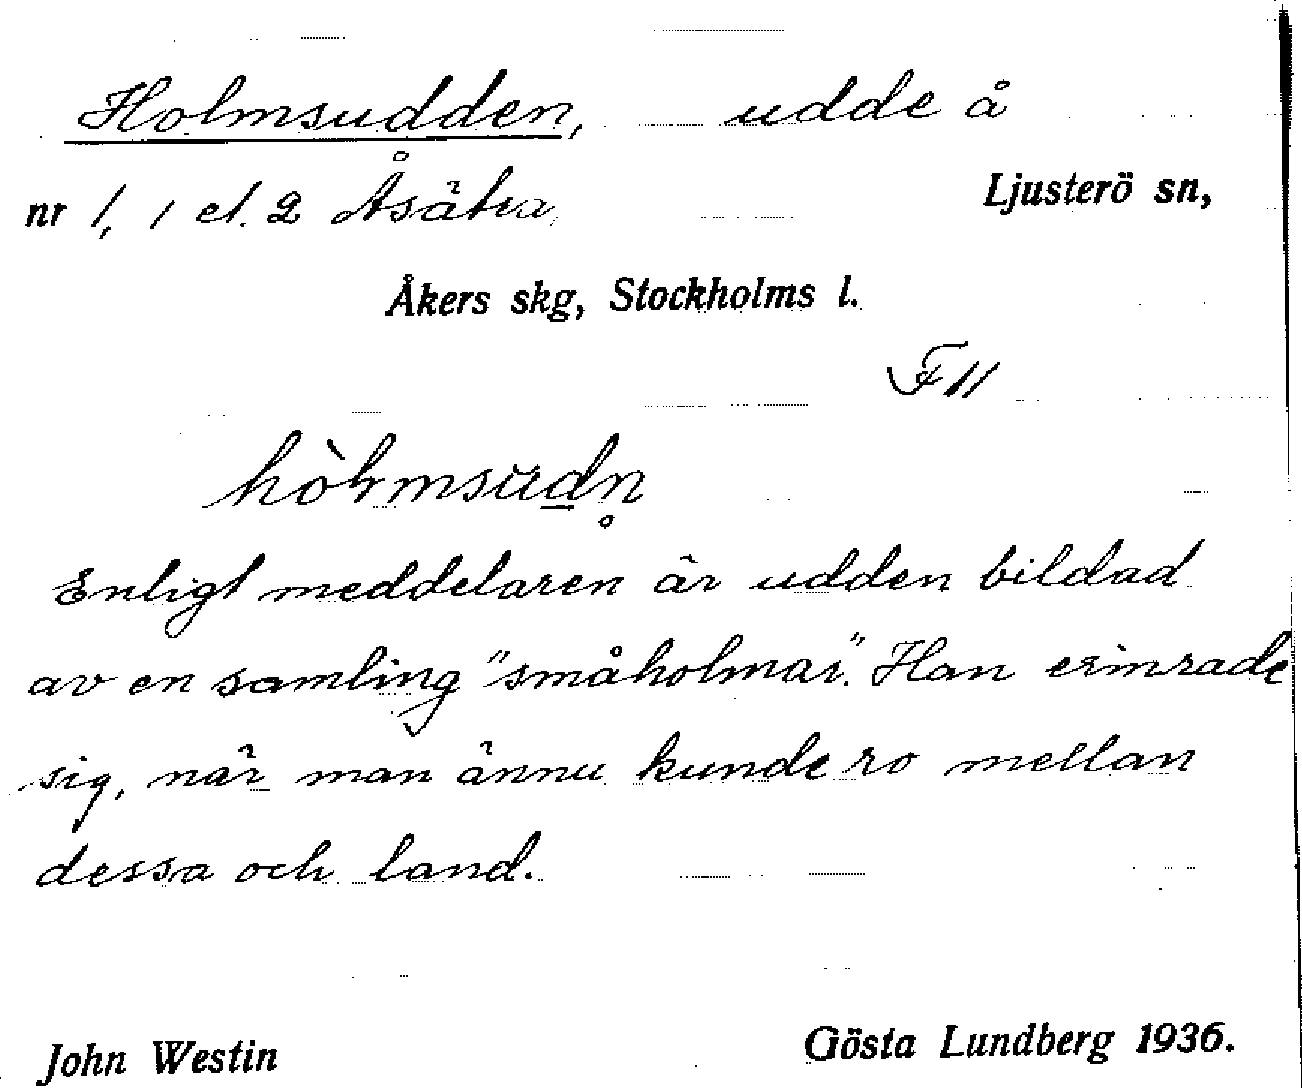 Holmsudden, udde å
nr 1, 1 el. 2 Åsätra, Ljusterö sn,
Åkers skg, Stockholms l.
F 11
Enligt meddelaren är udden bildad
av en samling "småholmar". Han erinrade
sig, när man ännu kunde ro mellan
dessa och land.
John Westin Gösta Lundberg 1936.